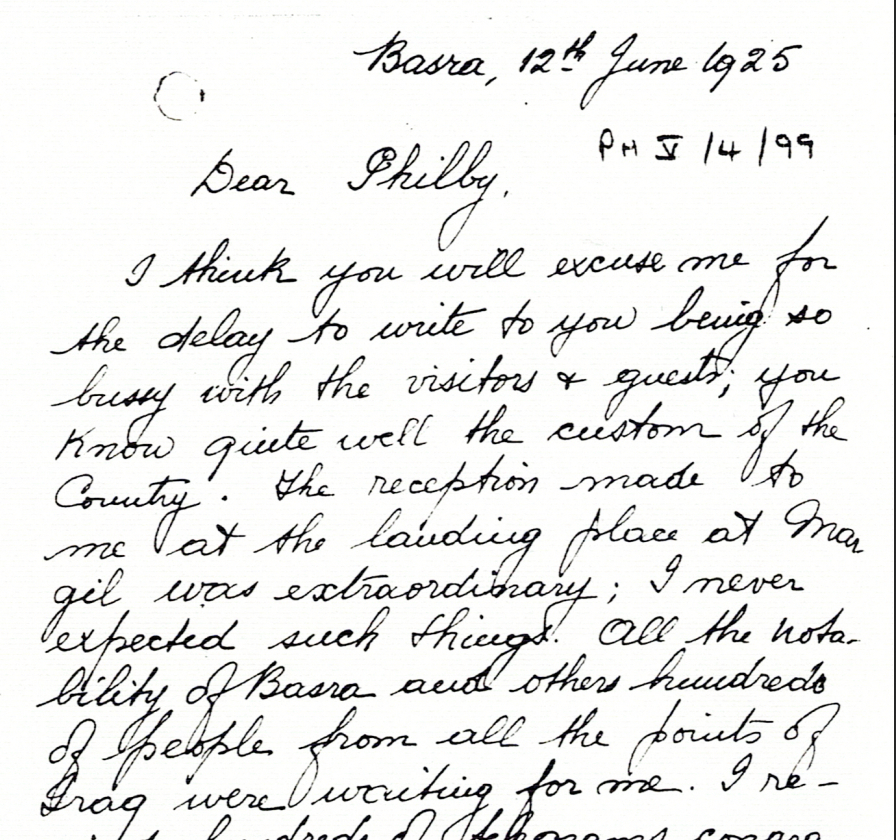 Basra, 12th June 1925
PH V /4/99
Dear Philby,
I think you will excuse me for
the delay to write to you being so
bussy with the visitors & guests; you
Know quite well the custom of the
Country. The reception made to
me at the landing place at Mar
gil was extraordinary; I never
expected such things. All the nota-
bility of Basra and others hundreds
of people from all the points of
Iraq were waiting for me. I re-
hundreds of telegrams congra